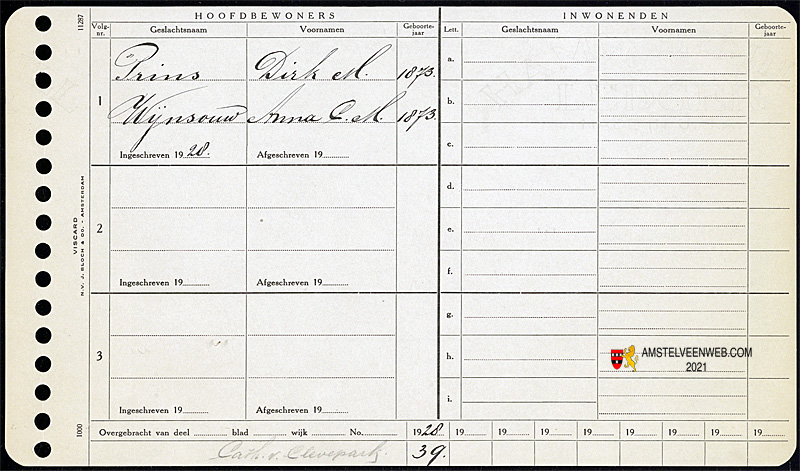 11287
HOOFDBEWONERS
INWONENDEN
Volg-nr. Geslachtsnaam Voornamen Geboorte-jaar
Lett. Geslachtsnaam Voornamen Geboorte-jaar
1
Prins Dirk M. 1873.
Wijnsouw Anna C. M. 1873.
Ingeschreven 1928. Afgeschreven 19
2
Ingeschreven 19 Afgeschreven 19
3
Ingeschreven 19 Afgeschreven 19
a.
b.
c.
d.
e.
f.
g.
h.
i.
AMSTELVEENWEB.COM
2021
VISCARD
N.V. J. BLOCH & CO. - AMSTERDAM
1000
Overgebracht van deel blad wijk No. 1928 19 19 19 19 19 19 19 19
Cath. v. Clevepark. 39.